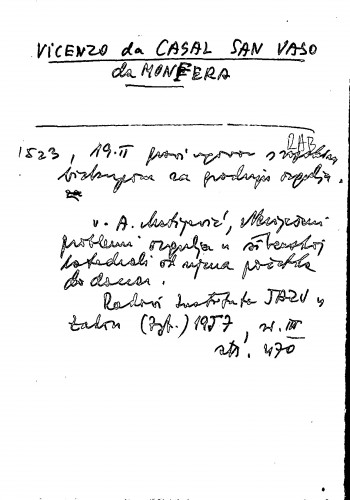 VICENZO da CASAL SAN VASO
da MONFERA
RAB
1523, 19.II pravi ugovor s rapskim
biskupom za gradnju orgulja.
v. A. Matijević,
problemi orgulja u šibenskoj
katedrali od njena početka
do danas.
Radovi Instituta JAZU u
Zadru (Zgb.) 1957, sv. III
str. 470